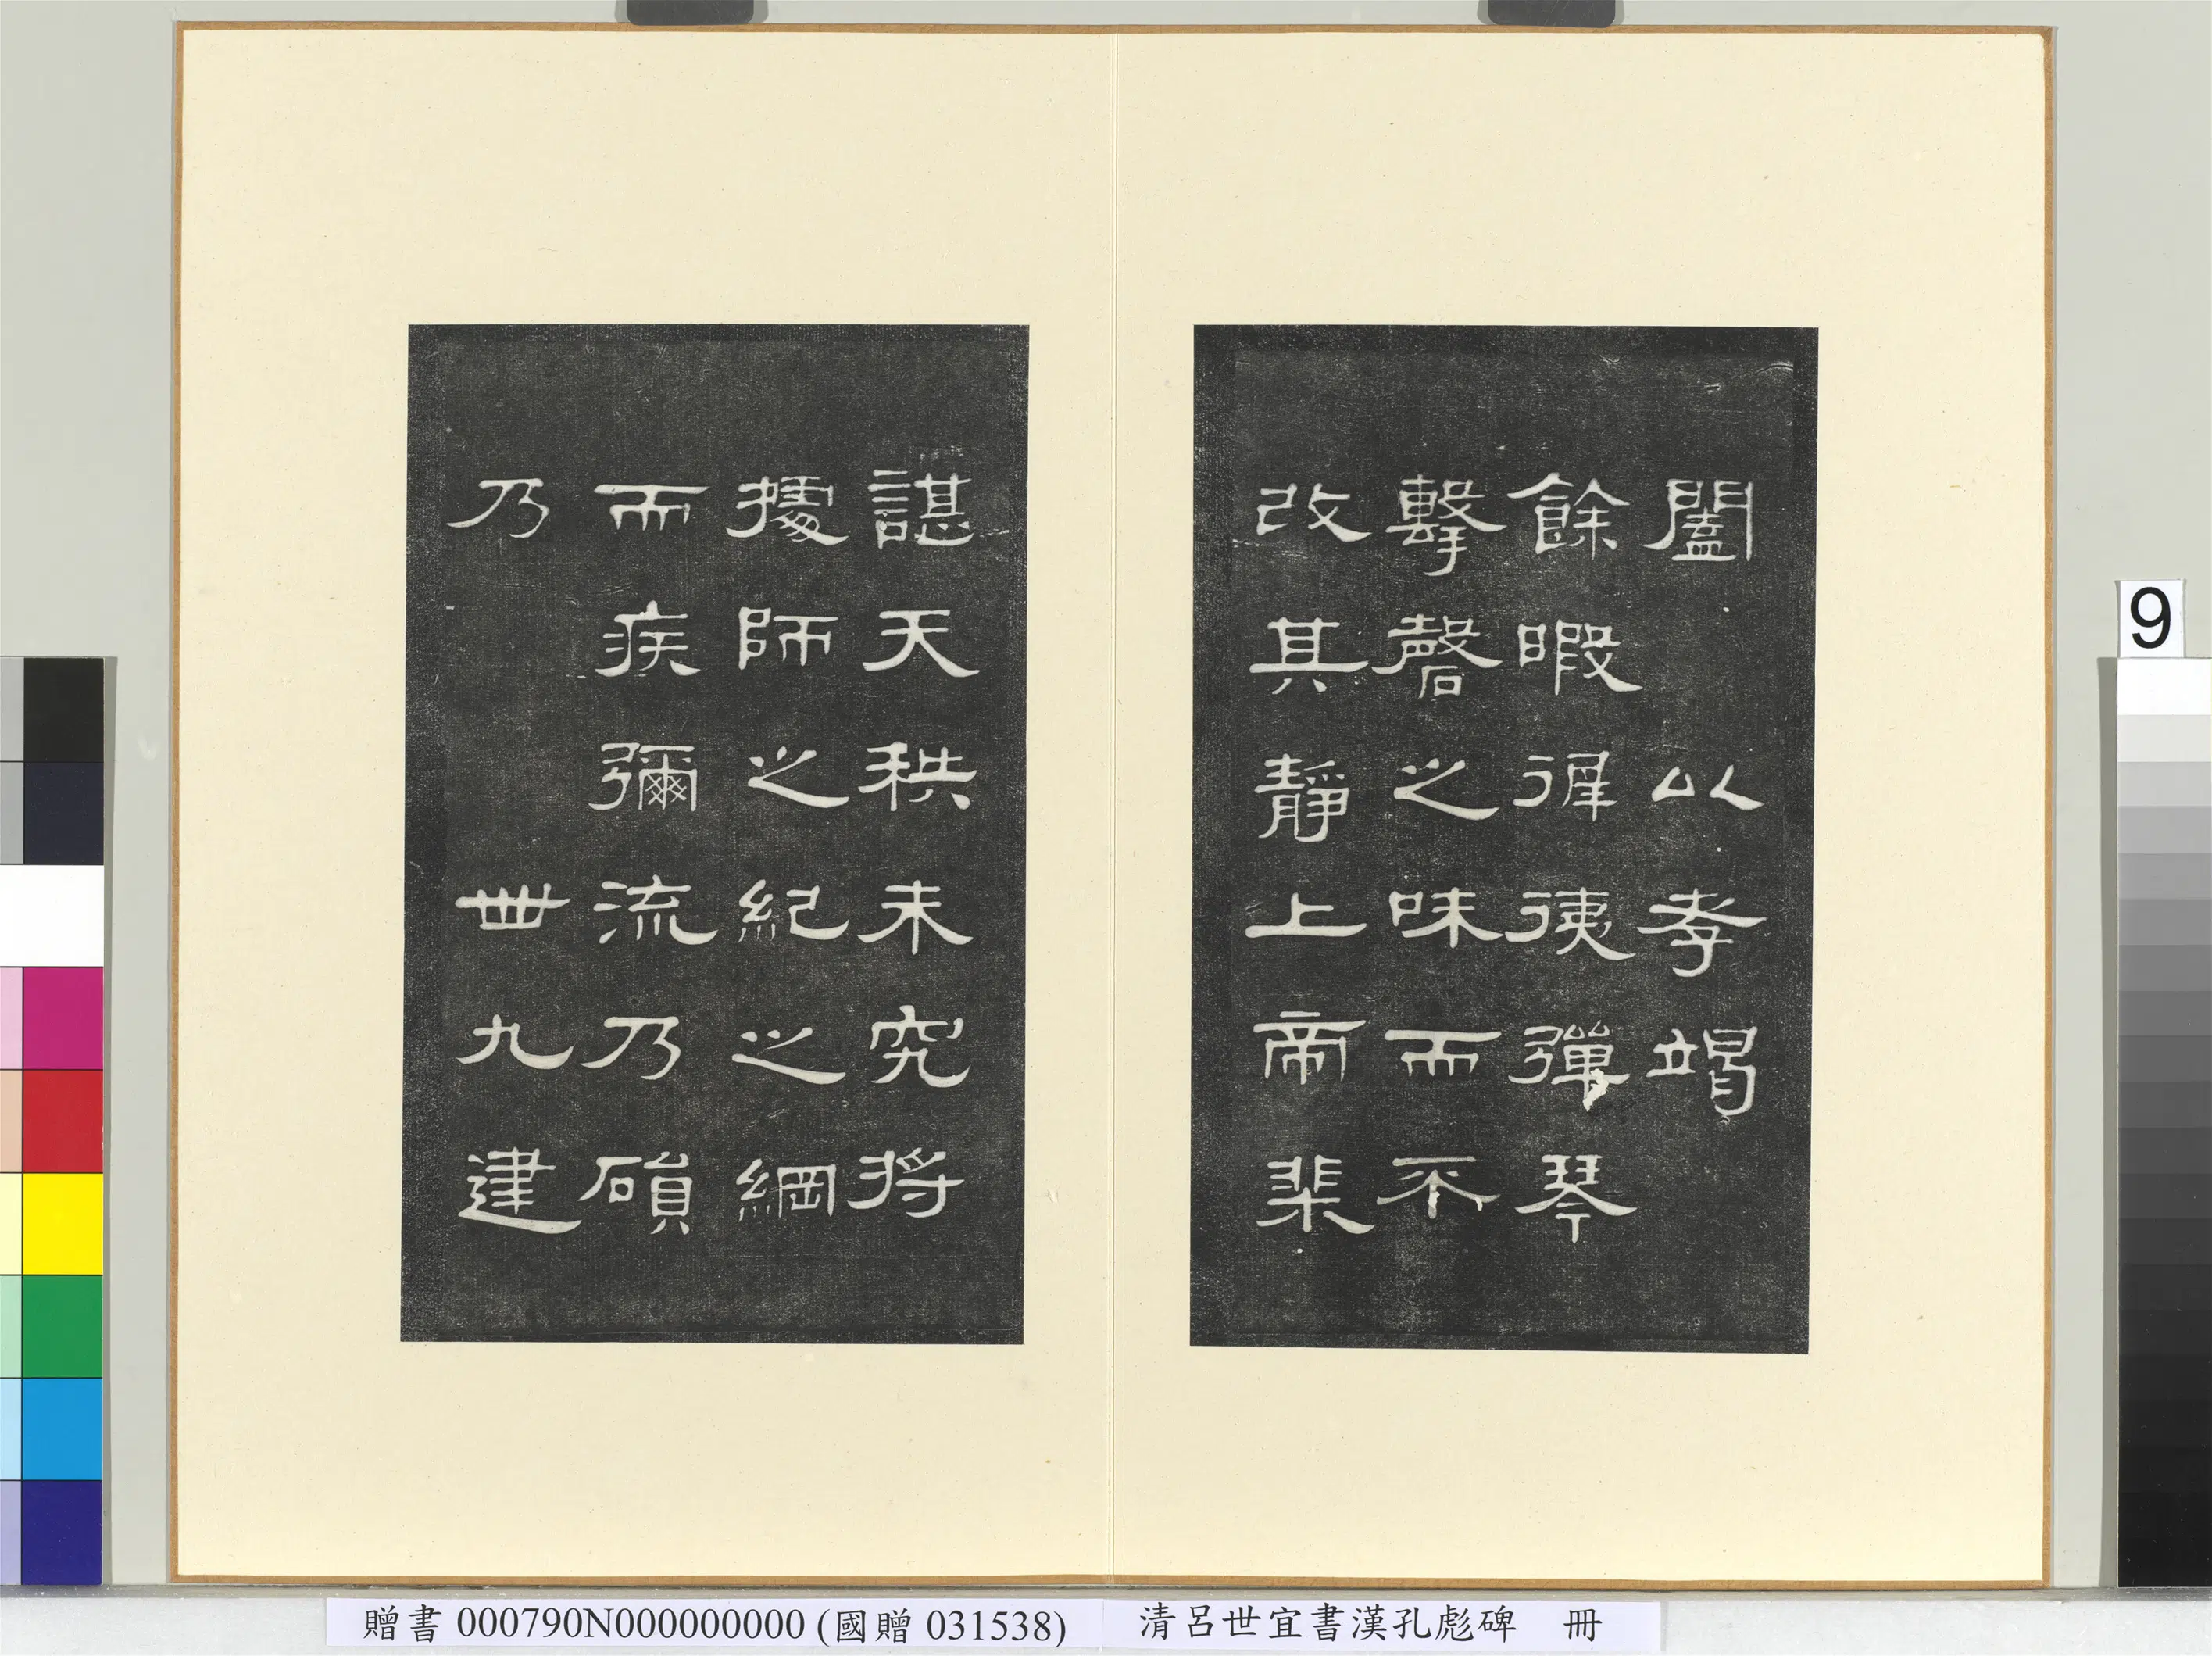 闔 以孝竭
餘暇徲㣢彈琴
擊磬之味而不
改其靜上帝棐
諶天秩未究将
據師之紀之綱
而疾彌流乃磒
乃 卌九建
9
贈書 000790N000000000 (國贈 031538)
清呂世宜書漢孔彪碑 冊